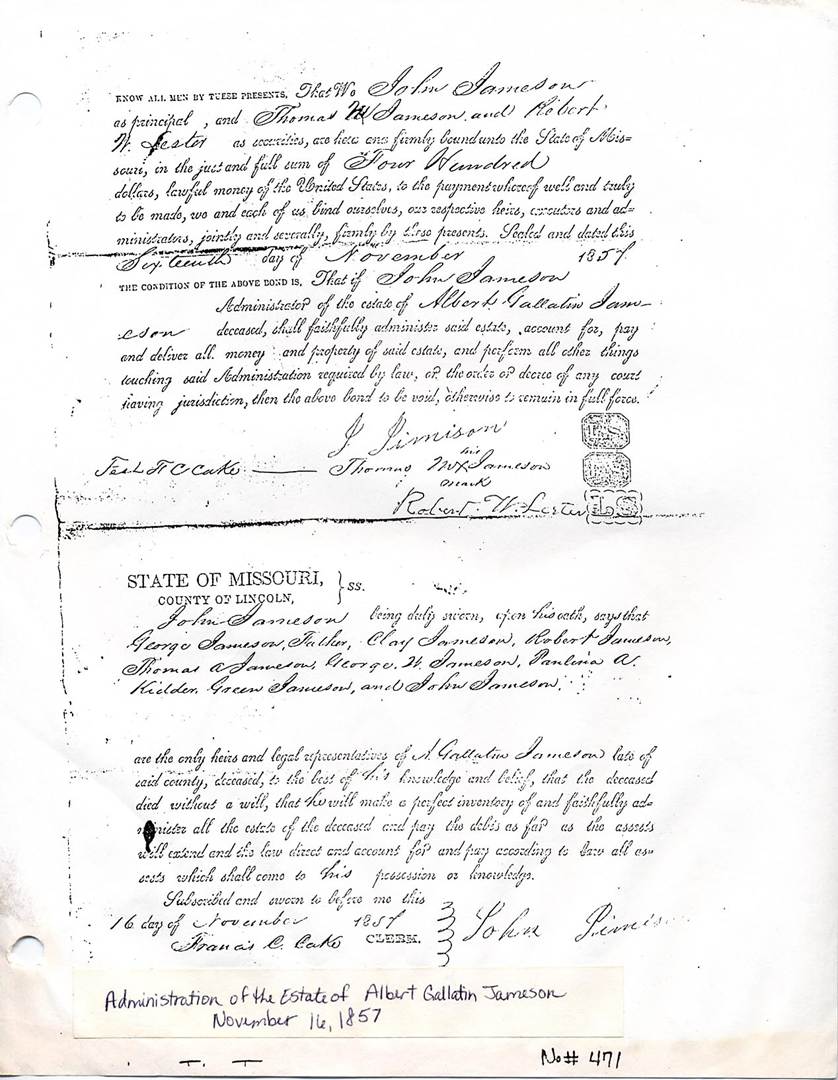 KNOW ALL MEN BY THESE PRESENTS, That We John Jameson
as principal, and Thomas M Jameson and Robert
W. Lester as securities, are held and firmly bound unto the State of Mis=
souri, in the just and full sum of Four Hundred
dollars, lawful money of the United States, to the payment whereof well and truly
to be made, we and each of us bind ourselves, our respective heirs, executors and ad=
ministrators, jointly and severally, firmly by these presents. Sealed and dated this
Sixteenth day of November 1857
THE CONDITION OF THE ABOVE BOND IS, That if John Jameson
Administrator of the estate of Albert Gallatin Jam-
eson deceased, shall faithfully administer said estate, account for, pay
and deliver all money and property of said estate, and perform all other things
touching said Administration required by law, or the order or decree of any court
having jurisdiction, then the above bond to be void, otherwise to remain in full force.
J Jimison
his
Test F C Cake — Thomas M X Jameson
mark
Robert W. Lester L S
STATE OF MISSOURI,
COUNTY OF LINCOLN, } ss.
John Jameson being duly sworn, upon his oath, says that
George Jameson, Father, Clay Jameson, Robert Jameson,
Thomas A Jameson, George H. Jameson, Paulina A.
Kidder, Green Jameson, and John Jameson.
are the only heirs and legal representatives of A. Gallatin Jameson late of
said county, deceased, to the best of his knowledge and belief, that the deceased
died without a will, that he will make a perfect inventory of and faithfully ad=
minister all the estate of the deceased and pay the debts as far as the assets
will extend and the law direct and account for and pay according to law all as=
sets which shall come to his possession or knowledge.
Subscribed and sworn to before me this
16 day of November 1857
Francis C. Cake CLERK.
John Jimison
Administration of the Estate of Albert Gallatin Jameson
November 16, 1857
No# 471